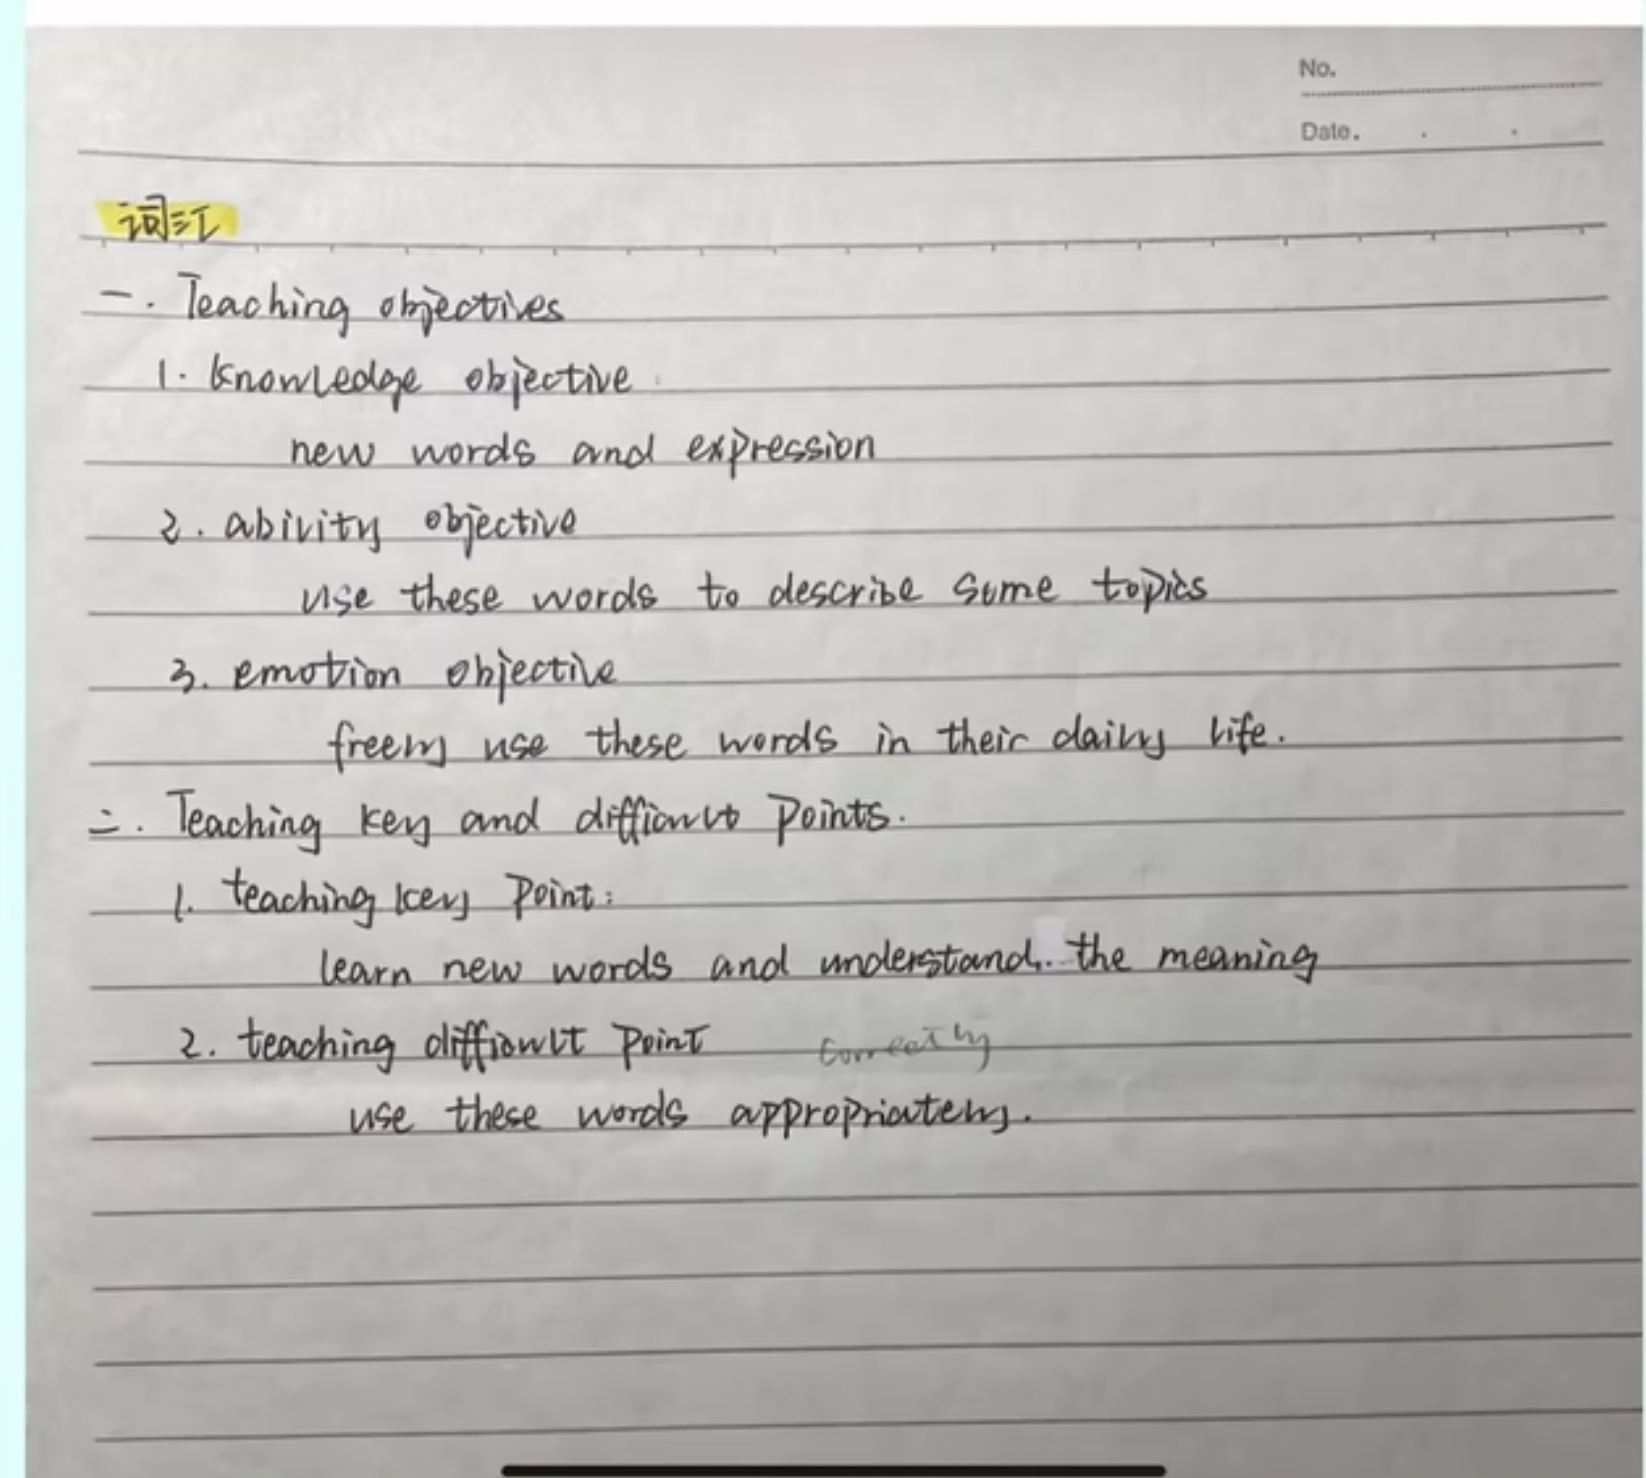 No.
Date.
词汇
一. Teaching objectives
1. knowledge objective
new words and expression
2. ability objective
use these words to describe some topics
3. emotion objective
freely use these words in their daily life.
二. Teaching key and difficult points.
1. teaching key point:
learn new words and understand. the meaning
2. teaching difficult point correctly
use these words appropriately.